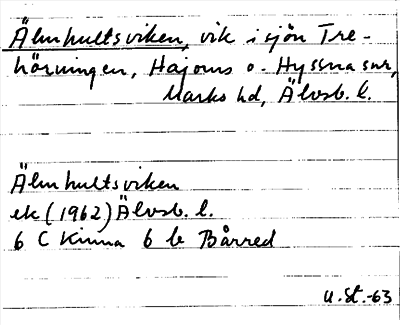 Älmhultsviken, vik i sjön Tre-
hörningen, Hajoms o. Hyssna snr,
Marks hd, Älvsb. l.
Älmhultsviken
ek (1962) Älvsb. l.
6 C Kinna 6 b Bårred
U.St.-63